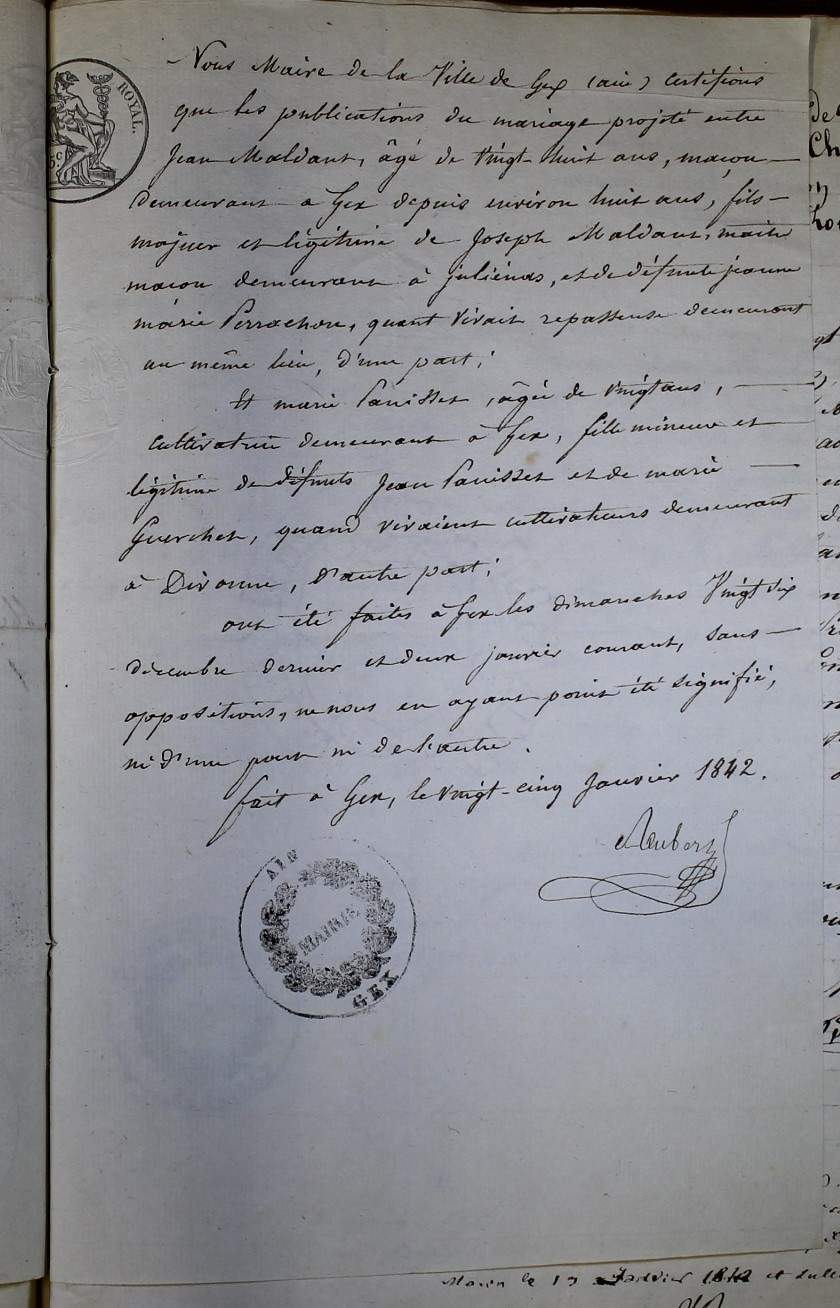 ROYAL.
5c.
Nous Maire de la Ville de Gex (ain) Certifions
que les publications du mariage projeté entre
Jean Maldant, âgé de Vingt-huit ans, maçon
demeurant à Gex depuis environ huit ans, fils
majeur et légitime de Joseph Maldant, maitre
macon demeurant à juliénas, et de défunte jeanne
marie Perrachon, quant vivait repasseuse demeurant
au même lieu, d'une part;
Et marie Panisset, âgée de vingt ans,
cultivatrice demeurant à Gex, fille mineure et
légitime de défunts Jean Panisset et de marie
Guerchet, quand vivaient cultivateurs demeurant
à Divonne, d'autre part;
ont été faites à Gex les dimanches Vingt six
décembre dernier et deux janvier courant, sans
oppositions, ne nous en ayant point été signifié,
ni d'une part ni de l'autre.
fait à Gex, le vingt-cinq Janvier 1842.
AIN
MAIRIE
GEX
Janvier 1842 et